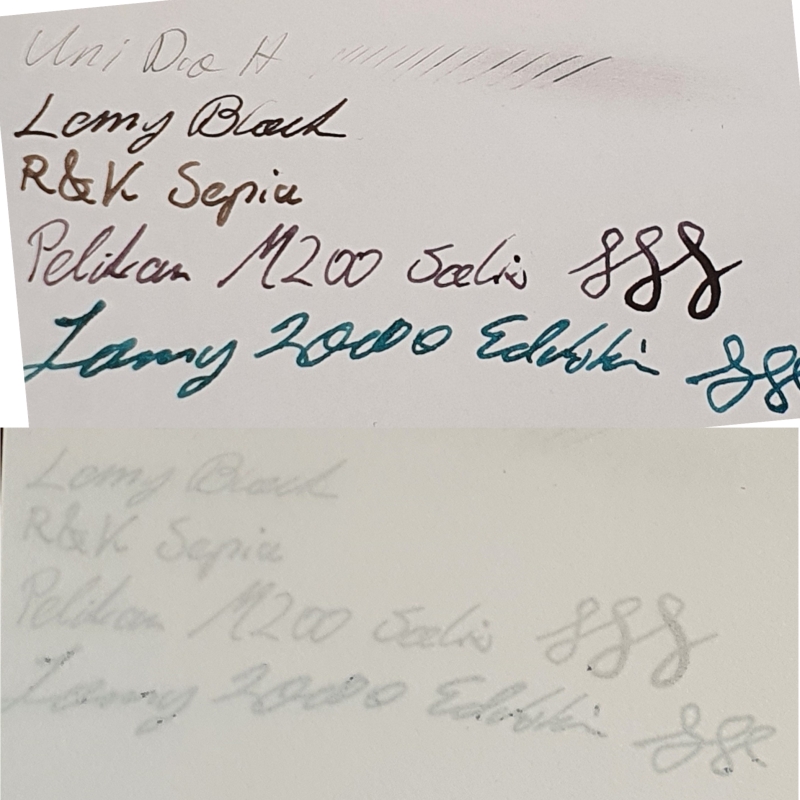 Uni Dia H
Lamy Black
R&K Sepia
Pelikan M200
Lamy 2000 Edelstein
Lamy Black
R&K Sepia
Pelikan M200
Lamy 2000 Edelstein